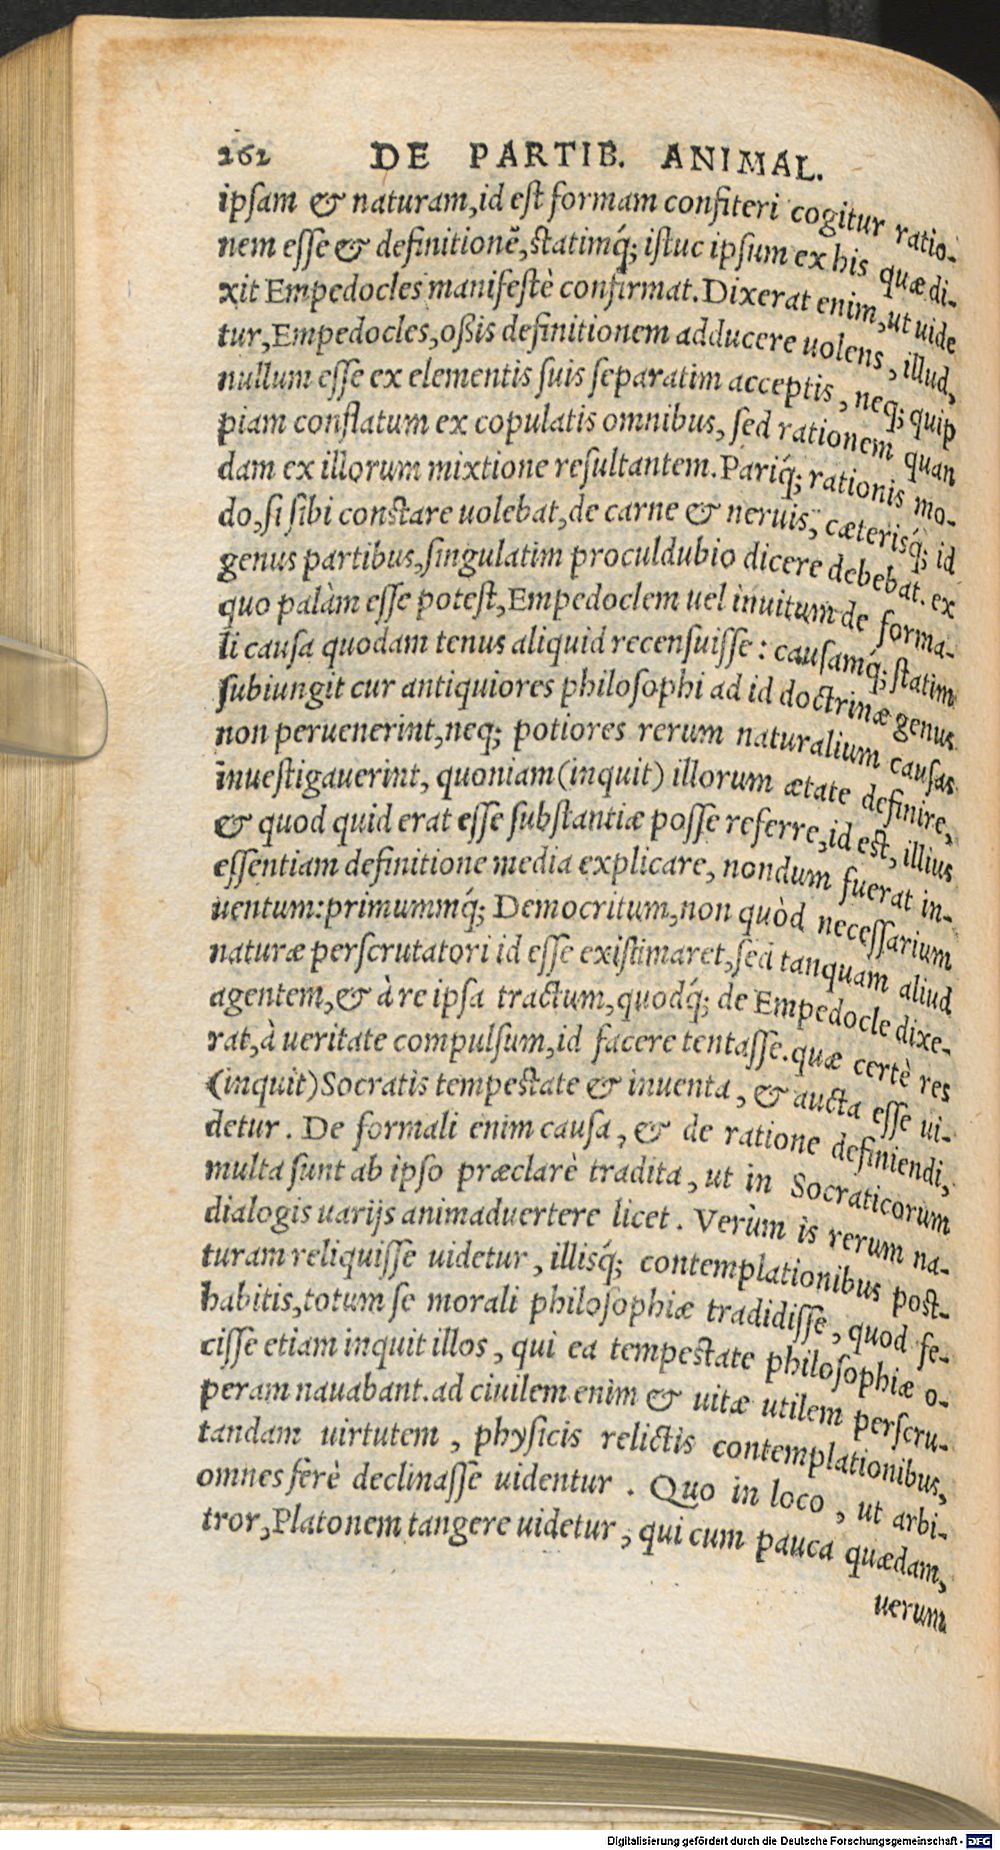 262 DE PARTIB. ANIMAL.
ipsam & naturam, id est formam confiteri cogitur ratio-
nem esse & definitionē, statimq́; istuc ipsum ex his quæ di-
xit Empedocles manifestè confirmat. Dixerat enim, ut uide
tur, Empedocles, oßis definitionem adducere uolens, illud,
nullum esse ex elementis suis separatim acceptis, neq; quip
piam conflatum ex copulatis omnibus, sed rationem quan
dam ex illorum mixtione resultantem. Pariq́; rationis mo-
do, si sibi constare uolebat, de carne & neruis, cæterisq́; id
genus partibus, singulatim proculdubio dicere debebat. ex
quo palàm esse potest, Empedoclem uel inuitum de forma-
li causa quodam tenus aliquid recensuisse: causamq́; statim
subiungit cur antiquiores philosophi ad id doctrinæ genus
non peruenerint, neq; potiores rerum naturalium causas
inuestigauerint, quoniam (inquit) illorum ætate definire,
& quod quid erat esse substantiæ posse referre, id est, illius
essentiam definitione media explicare, nondum fuerat in-
uentum: primummq́; Democritum, non quòd necessarium
naturæ perscrutatori id esse existimaret, sed tanquam aliud
agentem, & à re ipsa tractum, quodq́; de Empedocle dixe-
rat, à ueritate compulsum, id facere tentasse. quæ certè res
(inquit) Socratis tempestate & inuenta, & aucta esse ui-
detur. De formali enim causa, & de ratione definiendi,
multa sunt ab ipso præclarè tradita, ut in Socraticorum
dialogis uarijs animaduertere licet. Verùm is rerum na-
turam reliquisse uidetur, illisq́; contemplationibus post-
habitis, totum se morali philosophiæ tradidisse, quod fe-
cisse etiam inquit illos, qui ea tempestate philosophiæ o-
peram nauabant. ad ciuilem enim & uitæ utilem perscru-
tandam uirtutem, physicis relictis contemplationibus,
omnes ferè declinasse uidentur. Quo in loco, ut arbi-
tror, Platonem tangere uidetur, qui cum pauca quædam,
uerum
Digitalisierung gefördert durch die Deutsche Forschungsgemeinschaft - DFG